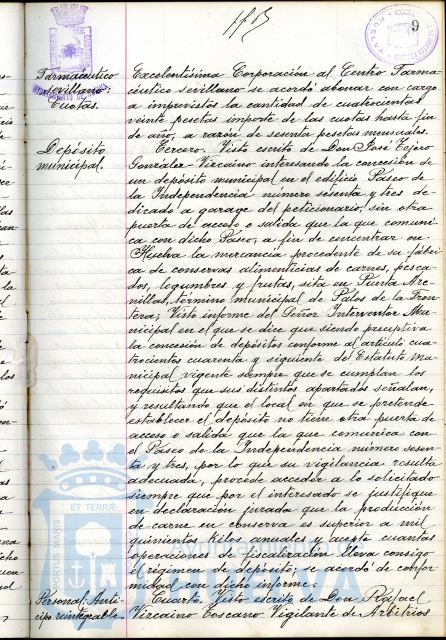 9
Farmacéutico
sevillano
Cuotas.
Excelentísima Corporación al Centro Farma-
céutico sevillano se acordó abonar con cargo
a imprevistos la cantidad de cuatrocientas
veinte pesetas importe de las cuotas hasta fin
de año, a razón de sesenta pesetas mensuales.
Depósito
municipal.
Tercero. Visto escrito de Don José Tejero
González-Vizcaíno interesando la concesión de
un depósito municipal en el edificio Paseo de
la Independencia número sesenta y tres de-
dicado a garage del peticionario, sin otra
puerta de acceso o salida que la que comuni-
ca con dicho Paseo, a fin de concentrar en
Huelva la mercancía procedente de su fábri-
ca de conservas alimenticias de carnes, pesca-
dos, legumbres y frutas, sita en Punta Are-
nillas, término municipal de Palos de la Fron-
tera; Visto informe del Señor Interventor Mu-
nicipal en el que se dice que siendo preceptiva
la concesión de depósitos conforme al artículo cua-
trocientos cuarenta y siguiente del Estatuto Mu-
nicipal vigente siempre que se cumplan los
requisitos que sus distintos apartados señalan,
y resultando que el local en que se pretende
establecer el depósito no tiene otra puerta de
acceso o salida que la que comunica con
el Paseo de la Independencia número sesen-
ta y tres, por lo que su vigilancia resulta
adecuada, procede acceder a lo solicitado
siempre que por el interesado se justifique
en declaración jurada que la producción
de carne en conserva es superior a mil
quinientos kilos anuales y acepte cuantas
operaciones de fiscalización lleva consigo
el régimen de depósito; se acordó de confor-
midad con dicho informe.
Personal. Anti-
cipo reintegrable.
Cuarto. Visto escrito de Don Rafael
Vizcaíno Toscano Vigilante de Arbitrios
PORTUS MARIS ET TERRÆ